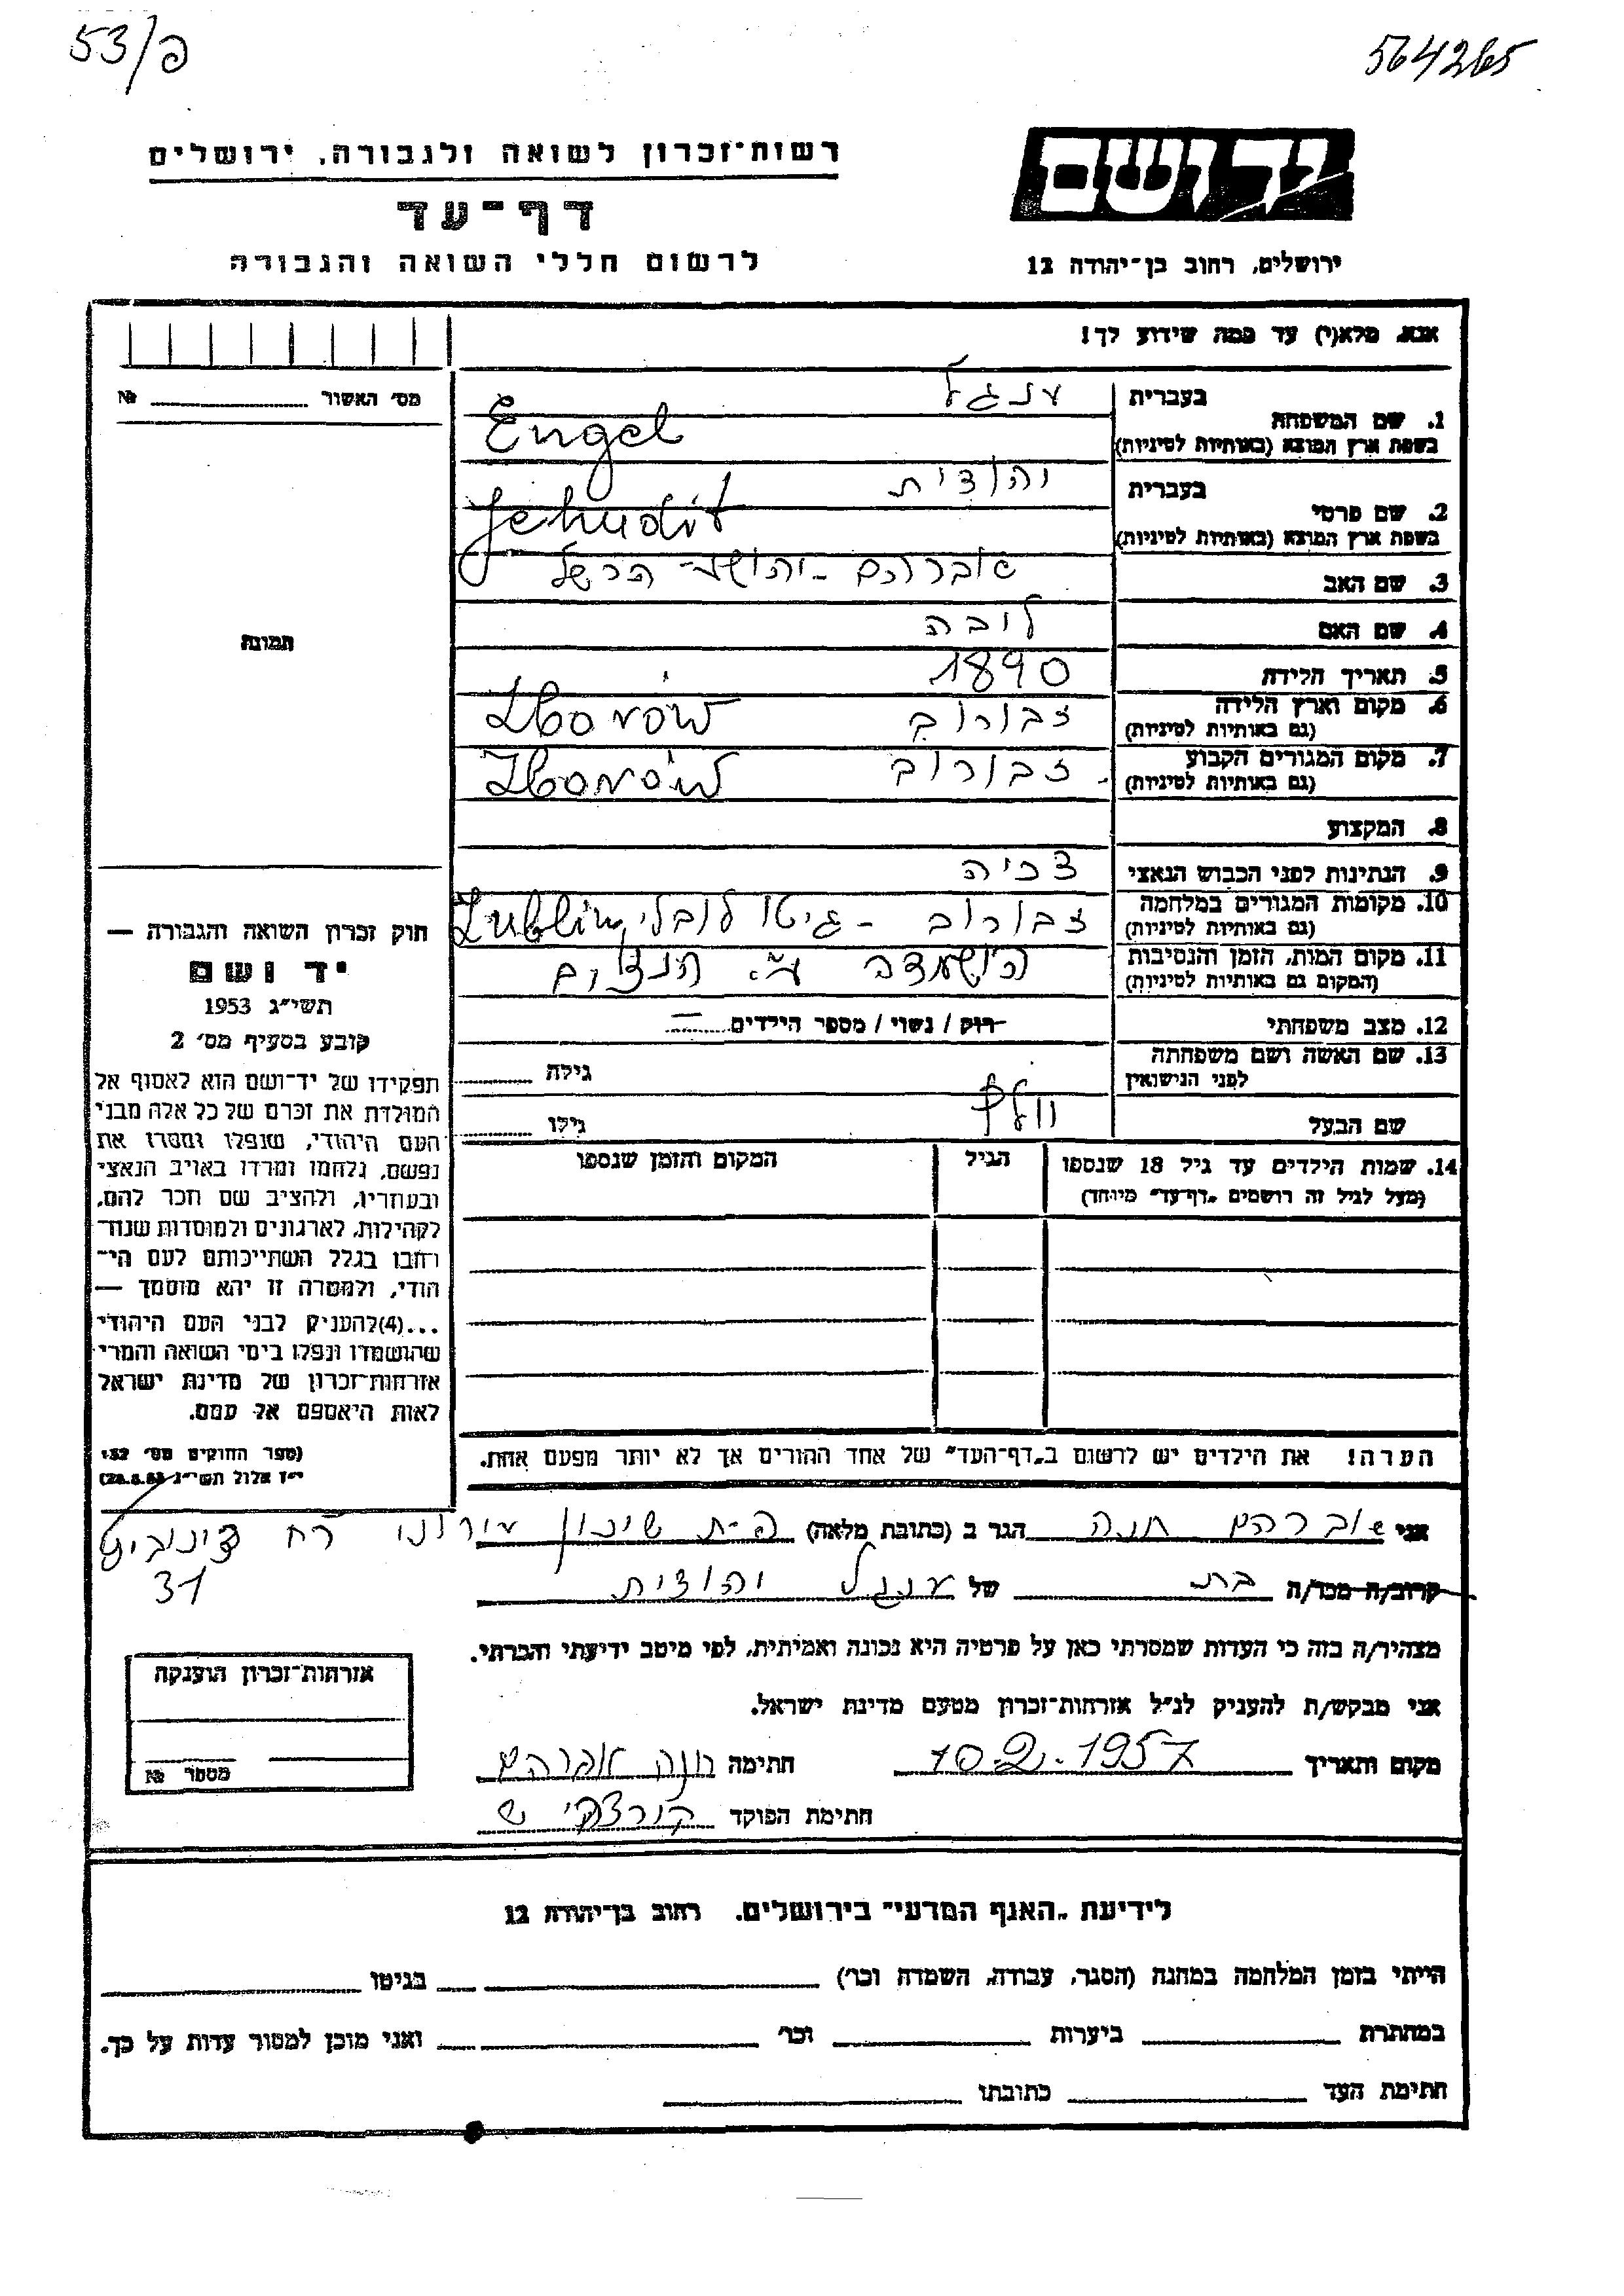 53/פ
564265
יד ושם
רשות־זכרון לשואה ולגבורה, ירושלים
דף־עד
לרשום חללי השואה והגבורה
ירושלים, רחוב בן־יהודה 12
אנא, מלא(י) עד כמה שידוע לך!
מס׳ האשור № 
תמונה
בעברית ענגל
1. שם המשפחה
בשפת ארץ המוצא (באותיות לטיניות) Engel
בעברית יהודית
2. שם פרטי
בשפת ארץ המוצא (באותיות לטיניות) Jehudit
3. שם האב אברהם - יהושע הרשל
4. שם האם לובה
5. תאריך הלידה 1890
6. מקום וארץ הלידה זבורוב Zborów
(גם באותיות לטיניות)
7. מקום המגורים הקבוע זבורוב Zborów
(גם באותיות לטיניות)
8. המקצוע
9. הנתינות לפני הכבוש הנאצי
10. מקומות המגורים במלחמה זבורוב - גיטו לובלין, Lublin
(גם באותיות לטיניות)
11. מקום המות, הזמן והנסיבות הושמדה ע״י הנצים
(המקום גם באותיות לטיניות)
12. מצב משפחתי רוק / נשוי / מספר הילדים —
13. שם האשה ושם משפחתה
לפני הנישואין גילה
שם הבעל וולף גילו
14. שמות הילדים עד גיל 18 שנספו הגיל המקום והזמן שנספו
(מעל לגיל זה רושמים „דף־עד״ מיוחד)
הערה! את הילדים יש לרשום ב„דף־העד״ של אחד ההורים אך לא יותר מפעם אחת.
חוק זכרון השואה והגבורה —
יד ושם
תשי״ג 1953
קובע בסעיף מס׳ 2
תפקידו של יד־ושם הוא לאסוף אל
המולדת את זכרם של כל אלה מבני
העם היהודי, שנפלו ומסרו את
נפשם, נלחמו ומרדו באויב הנאצי
ובעוזריו, ולהציב שם וזכר להם,
לקהילות, לארגונים ולמוסדות שנח־
רבו בגלל השתייכותם לעם הי־
הודי, ולמטרה זו יהא מוסמך —
...(4) להעניק לבני העם היהודי
שהושמדו ונפלו בימי השואה והמרי
אזרחות־זכרון של מדינת ישראל
לאות היאספם אל עמם.
(ספר החוקים מס׳ 132
י״ז אלול תשי״ג 28.8.53)
אני אברהם חנה הגר ב (כתובת מלאה) פ-ת שיכון עירוני רח
31
קרוב/ה מכר/ה בת של ענגל יהודית
מצהיר/ה בזה כי העדות שמסרתי כאן על פרטיה היא נכונה ואמיתית, לפי מיטב ידיעתי והכרתי.
אני מבקש/ת להעניק לנ״ל אזרחות־זכרון מטעם מדינת ישראל.
מקום ותאריך 10-2-1957 חתימה חנה אברהם
חתימת הפוקד
אזרחות־זכרון הוענקה
מספר №
לידיעת „האגף המדעי״ בירושלים, רחוב בן־יהודה 12
הייתי בזמן המלחמה במחנה (הסגר, עבודה, השמדה וכו׳) בגיטו
במחתרת ביערות וכו׳ ואני מוכן למסור עדות על כך.
חתימת העד כתובתו